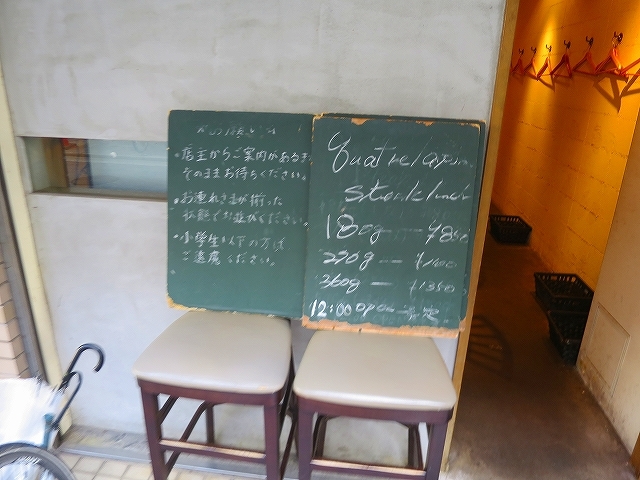 ・店主からご案内があるまで
そのままお待ちください。
・お連れさまが揃った
状態でお並びください
・小学生以下の方は
ご遠慮ください。
Quatrelapin
steak lunch
180g — ¥850
270g — ¥1100
360g — ¥1350
12:00 OPEN